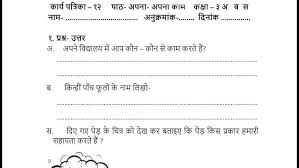 कार्य पत्रिका – १२ पाठ- अपना- अपना काम कक्षा – ३ अ ब स
नाम- ------------------ अनुक्रमांक- -------------- दिनांक ------------
१. प्रश्न- उत्तर
अ. अपने विद्यालय में आप कौन – कौन से काम करते हैं?
ब. किन्हीं पाँच फूलों के नाम लिखो-
स. दिए गए पेड़ के चित्र को देख कर बताइए कि पेड़ किस प्रकार हमारी
सहायता करते हैं ?